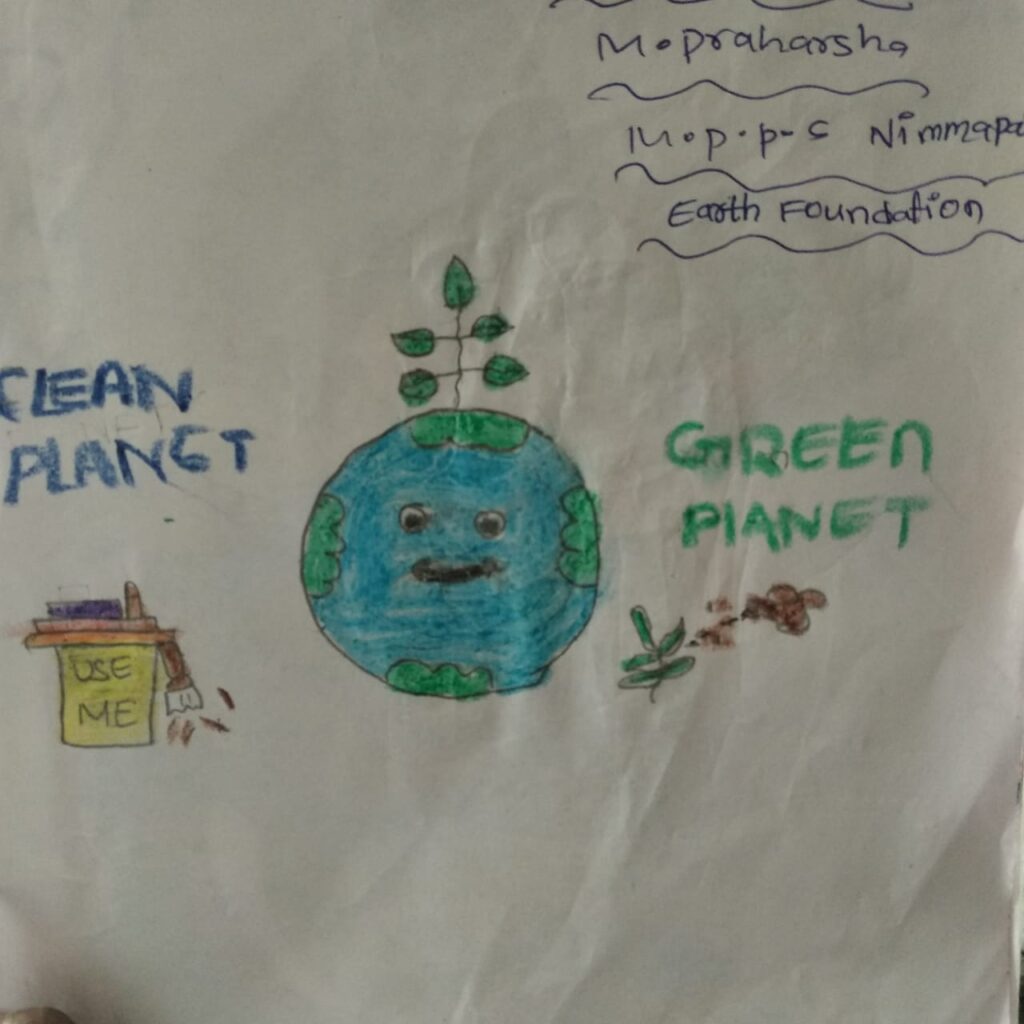 M.praharsha
M.p.p.s Nimmapa
Earth Foundation
CLEAN
PLANET
GREEN
PLANET
USE
ME